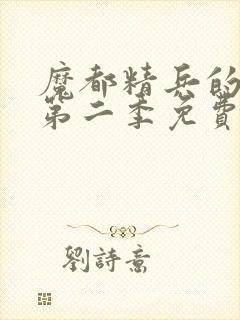 魔都精兵的
第二季免費
劉詩意